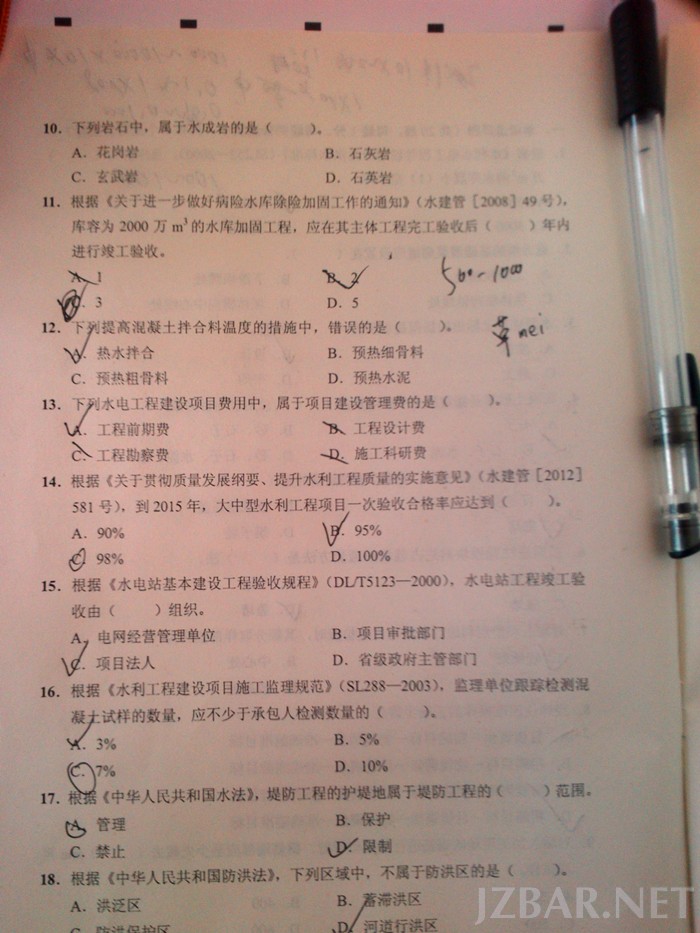 10. 下列岩石中，属于水成岩的是（　　）。
A. 花岗岩　　B. 石灰岩
C. 玄武岩　　D. 石英岩
11. 根据《关于进一步做好病险水库除险加固工作的通知》（水建管［2008］49号），
库容为2000万m³的水库加固工程，应在其主体工程完工验收后（　　）年内
进行竣工验收。
A. 1　　B. 2　　500~1000
C. 3　　D. 5
12. 下列提高混凝土拌合料温度的措施中，错误的是（　　）。
A. 热水拌合　　B. 预热细骨料
C. 预热粗骨料　　D. 预热水泥
13. 下列水电工程建设项目费用中，属于项目建设管理费的是（　　）。
A. 工程前期费　　B. 工程设计费
C. 工程勘察费　　D. 施工科研费
14. 根据《关于贯彻质量发展纲要、提升水利工程质量的实施意见》（水建管［2012］
581号），到2015年，大中型水利工程项目一次验收合格率应达到（　　）。
A. 90%　　B. 95%
C. 98%　　D. 100%
15. 根据《水电站基本建设工程验收规程》（DL/T5123—2000），水电站工程竣工验
收由（　　）组织。
A. 电网经营管理单位　　B. 项目审批部门
C. 项目法人　　D. 省级政府主管部门
16. 根据《水利工程建设项目施工监理规范》（SL288—2003），监理单位跟踪检测混
凝土试样的数量，应不少于承包人检测数量的（　　）。
A. 3%　　B. 5%
C. 7%　　D. 10%
17. 根据《中华人民共和国水法》，堤防工程的护堤地属于堤防工程的（　　）范围。
A. 管理　　B. 保护
C. 禁止　　D. 限制
18. 根据《中华人民共和国防洪法》，下列区域中，不属于防洪区的是（　　）。
A. 洪泛区　　B. 蓄滞洪区
C. 防洪保护区　　D. 河道行洪区
JZBAR.NET